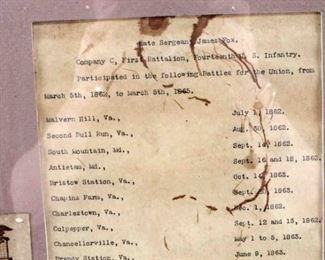 Late Sergeant James Fox.
Company C, First Battalion, Fourteenth U. S. Infantry.
Participated in the following Battles for the Union, from
March 5th, 1862, to March 5th, 1865.
Malvern Hill, Va., July 1, 1862.
Second Bull Run, Va., Aug. 30, 1862.
South Mountain, Md., Sept. 14, 1862.
Antietam, Md., Sept. 16 and 18, 1862.
Bristow Station, Va., Oct. 14, 1863.
Chapins Farm, Va., Sept. 1863.
Charlestown, Va., Dec. 1, 1862.
Culpepper, Va., Sept. 12 and 13, 1862.
Chancellorville, Va., May 1 to 5, 1863.
Brandy Station, Va., June 9, 1863.